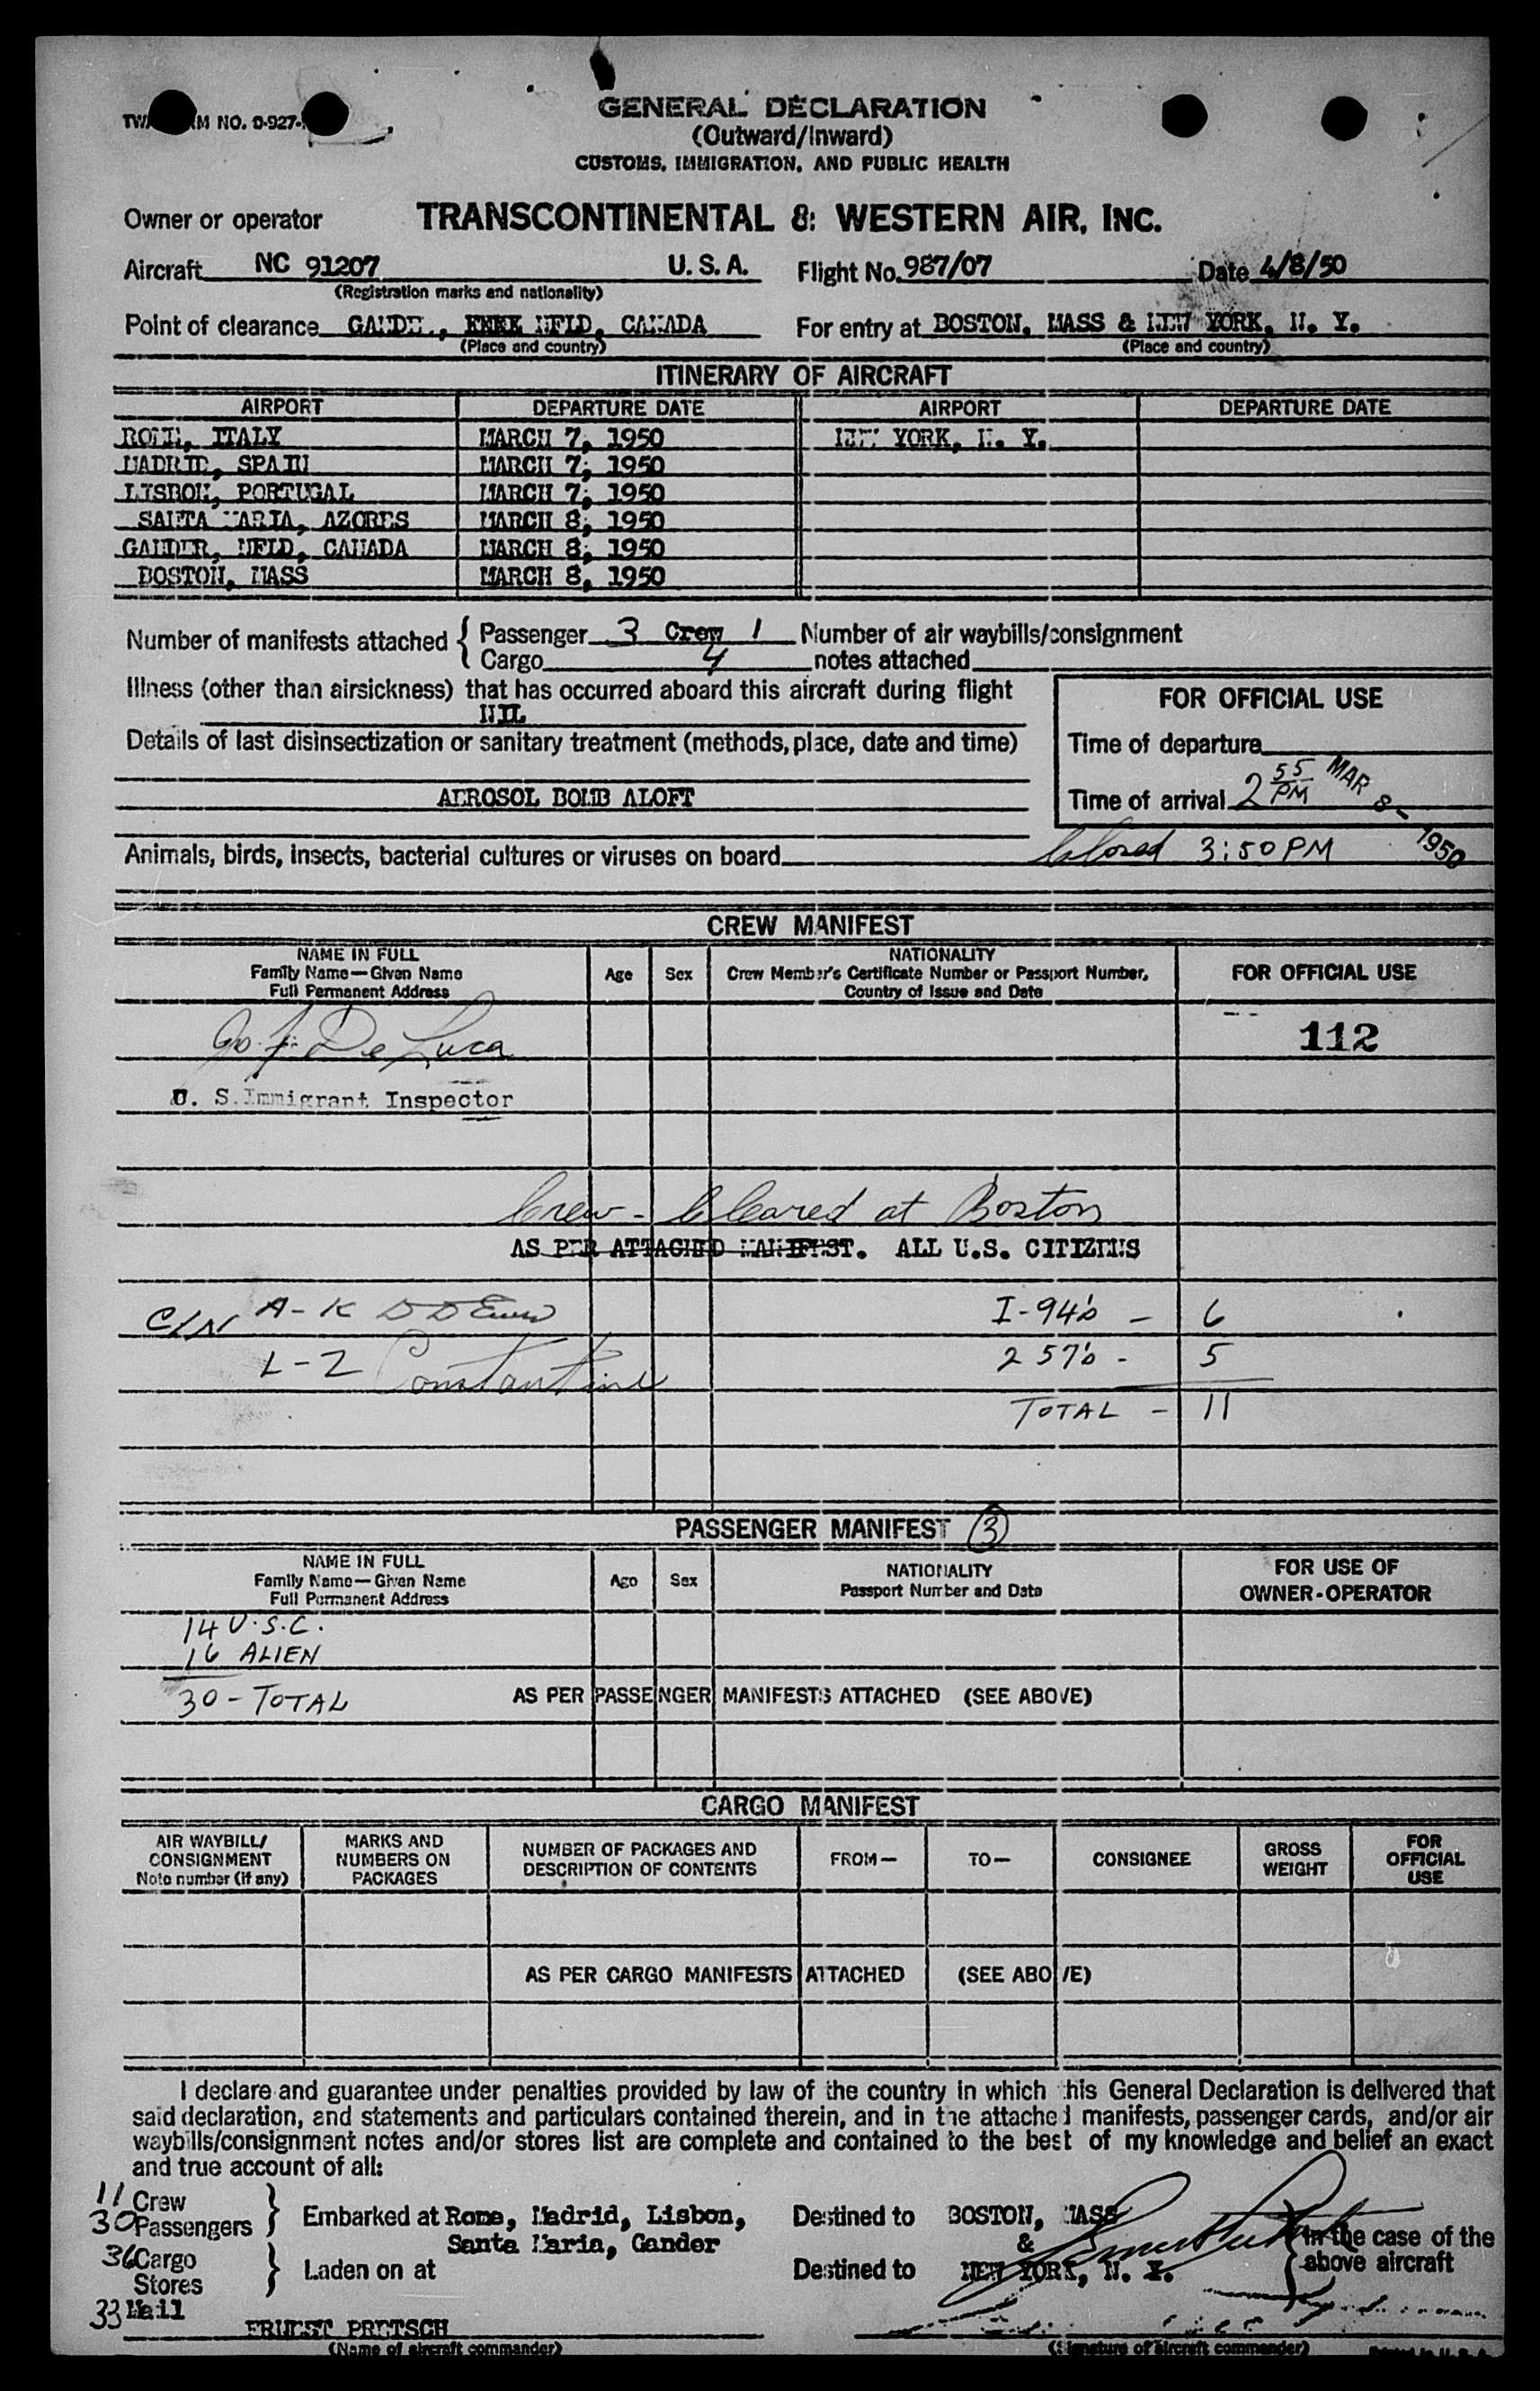 TWA FORM NO. 0-927-
GENERAL DECLARATION
(Outward/Inward)
CUSTOMS, IMMIGRATION, AND PUBLIC HEALTH
Owner or operator TRANSCONTINENTAL & WESTERN AIR, INC.
Aircraft NC 91207 U.S.A. Flight No. 987/07 Date 4/8/50
(Registration marks and nationality)
Point of clearance GANDE , NFLD, CANADA For entry at BOSTON, MASS & NEW YORK, N. Y.
(Place and country) (Place and country)
ITINERARY OF AIRCRAFT
AIRPORT DEPARTURE DATE AIRPORT DEPARTURE DATE
ROME, ITALY MARCH 7, 1950 NEW YORK, N. Y.
MADRID, SPAIN MARCH 7, 1950
LISBON, PORTUGAL MARCH 7, 1950
SANTA MARIA, AZORES MARCH 8, 1950
GANDER, NFLD, CANADA MARCH 8, 1950
BOSTON, MASS MARCH 8, 1950
Number of manifests attached { Passenger 3 Crew 1 Number of air waybills/consignment
Cargo 4 notes attached
Illness (other than airsickness) that has occurred aboard this aircraft during flight
NIL
FOR OFFICIAL USE
Details of last disinsectization or sanitary treatment (methods, place, date and time)
Time of departure
AEROSOL BOMB ALOFT
Time of arrival 2 55 PM MAR 8 - 1950
Animals, birds, insects, bacterial cultures or viruses on board
Cleared 3:50 PM
CREW MANIFEST
NAME IN FULL
Family Name—Given Name
Full Permanent Address
Age Sex
NATIONALITY
Crew Member's Certificate Number or Passport Number,
Country of Issue and Date
FOR OFFICIAL USE
Jo. F. De Luca 112
U. S. Immigrant Inspector
Crew - Cleared at Boston
AS PER ATTACHED MANIFEST. ALL U.S. CITIZENS
A-K I-94's - 6
L-Z Constantine 257's - 5
TOTAL - 11
PASSENGER MANIFEST (3)
NAME IN FULL
Family Name—Given Name
Full Permanent Address
Age Sex
NATIONALITY
Passport Number and Date
FOR USE OF
OWNER-OPERATOR
14 U.S.C.
16 ALIEN
30 - TOTAL AS PER PASSENGER MANIFESTS ATTACHED (SEE ABOVE)
CARGO MANIFEST
AIR WAYBILL/
CONSIGNMENT
Note number (if any)
MARKS AND
NUMBERS ON
PACKAGES
NUMBER OF PACKAGES AND
DESCRIPTION OF CONTENTS
FROM— TO— CONSIGNEE
GROSS
WEIGHT
FOR
OFFICIAL
USE
AS PER CARGO MANIFESTS ATTACHED (SEE ABOVE)
I declare and guarantee under penalties provided by law of the country in which this General Declaration is delivered that
said declaration, and statements and particulars contained therein, and in the attached manifests, passenger cards, and/or air
waybills/consignment notes and/or stores list are complete and contained to the best of my knowledge and belief an exact
and true account of all:
11 Crew
30 Passengers } Embarked at Rome, Madrid, Lisbon, Destined to BOSTON, MASS
Santa Maria, Gander &
36 Cargo
Stores } Laden on at Destined to NEW YORK, N. Y.
} in the case of the
above aircraft
33 Mail
ERNEST PRETSCH
(Name of aircraft commander) (Signature of aircraft commander)